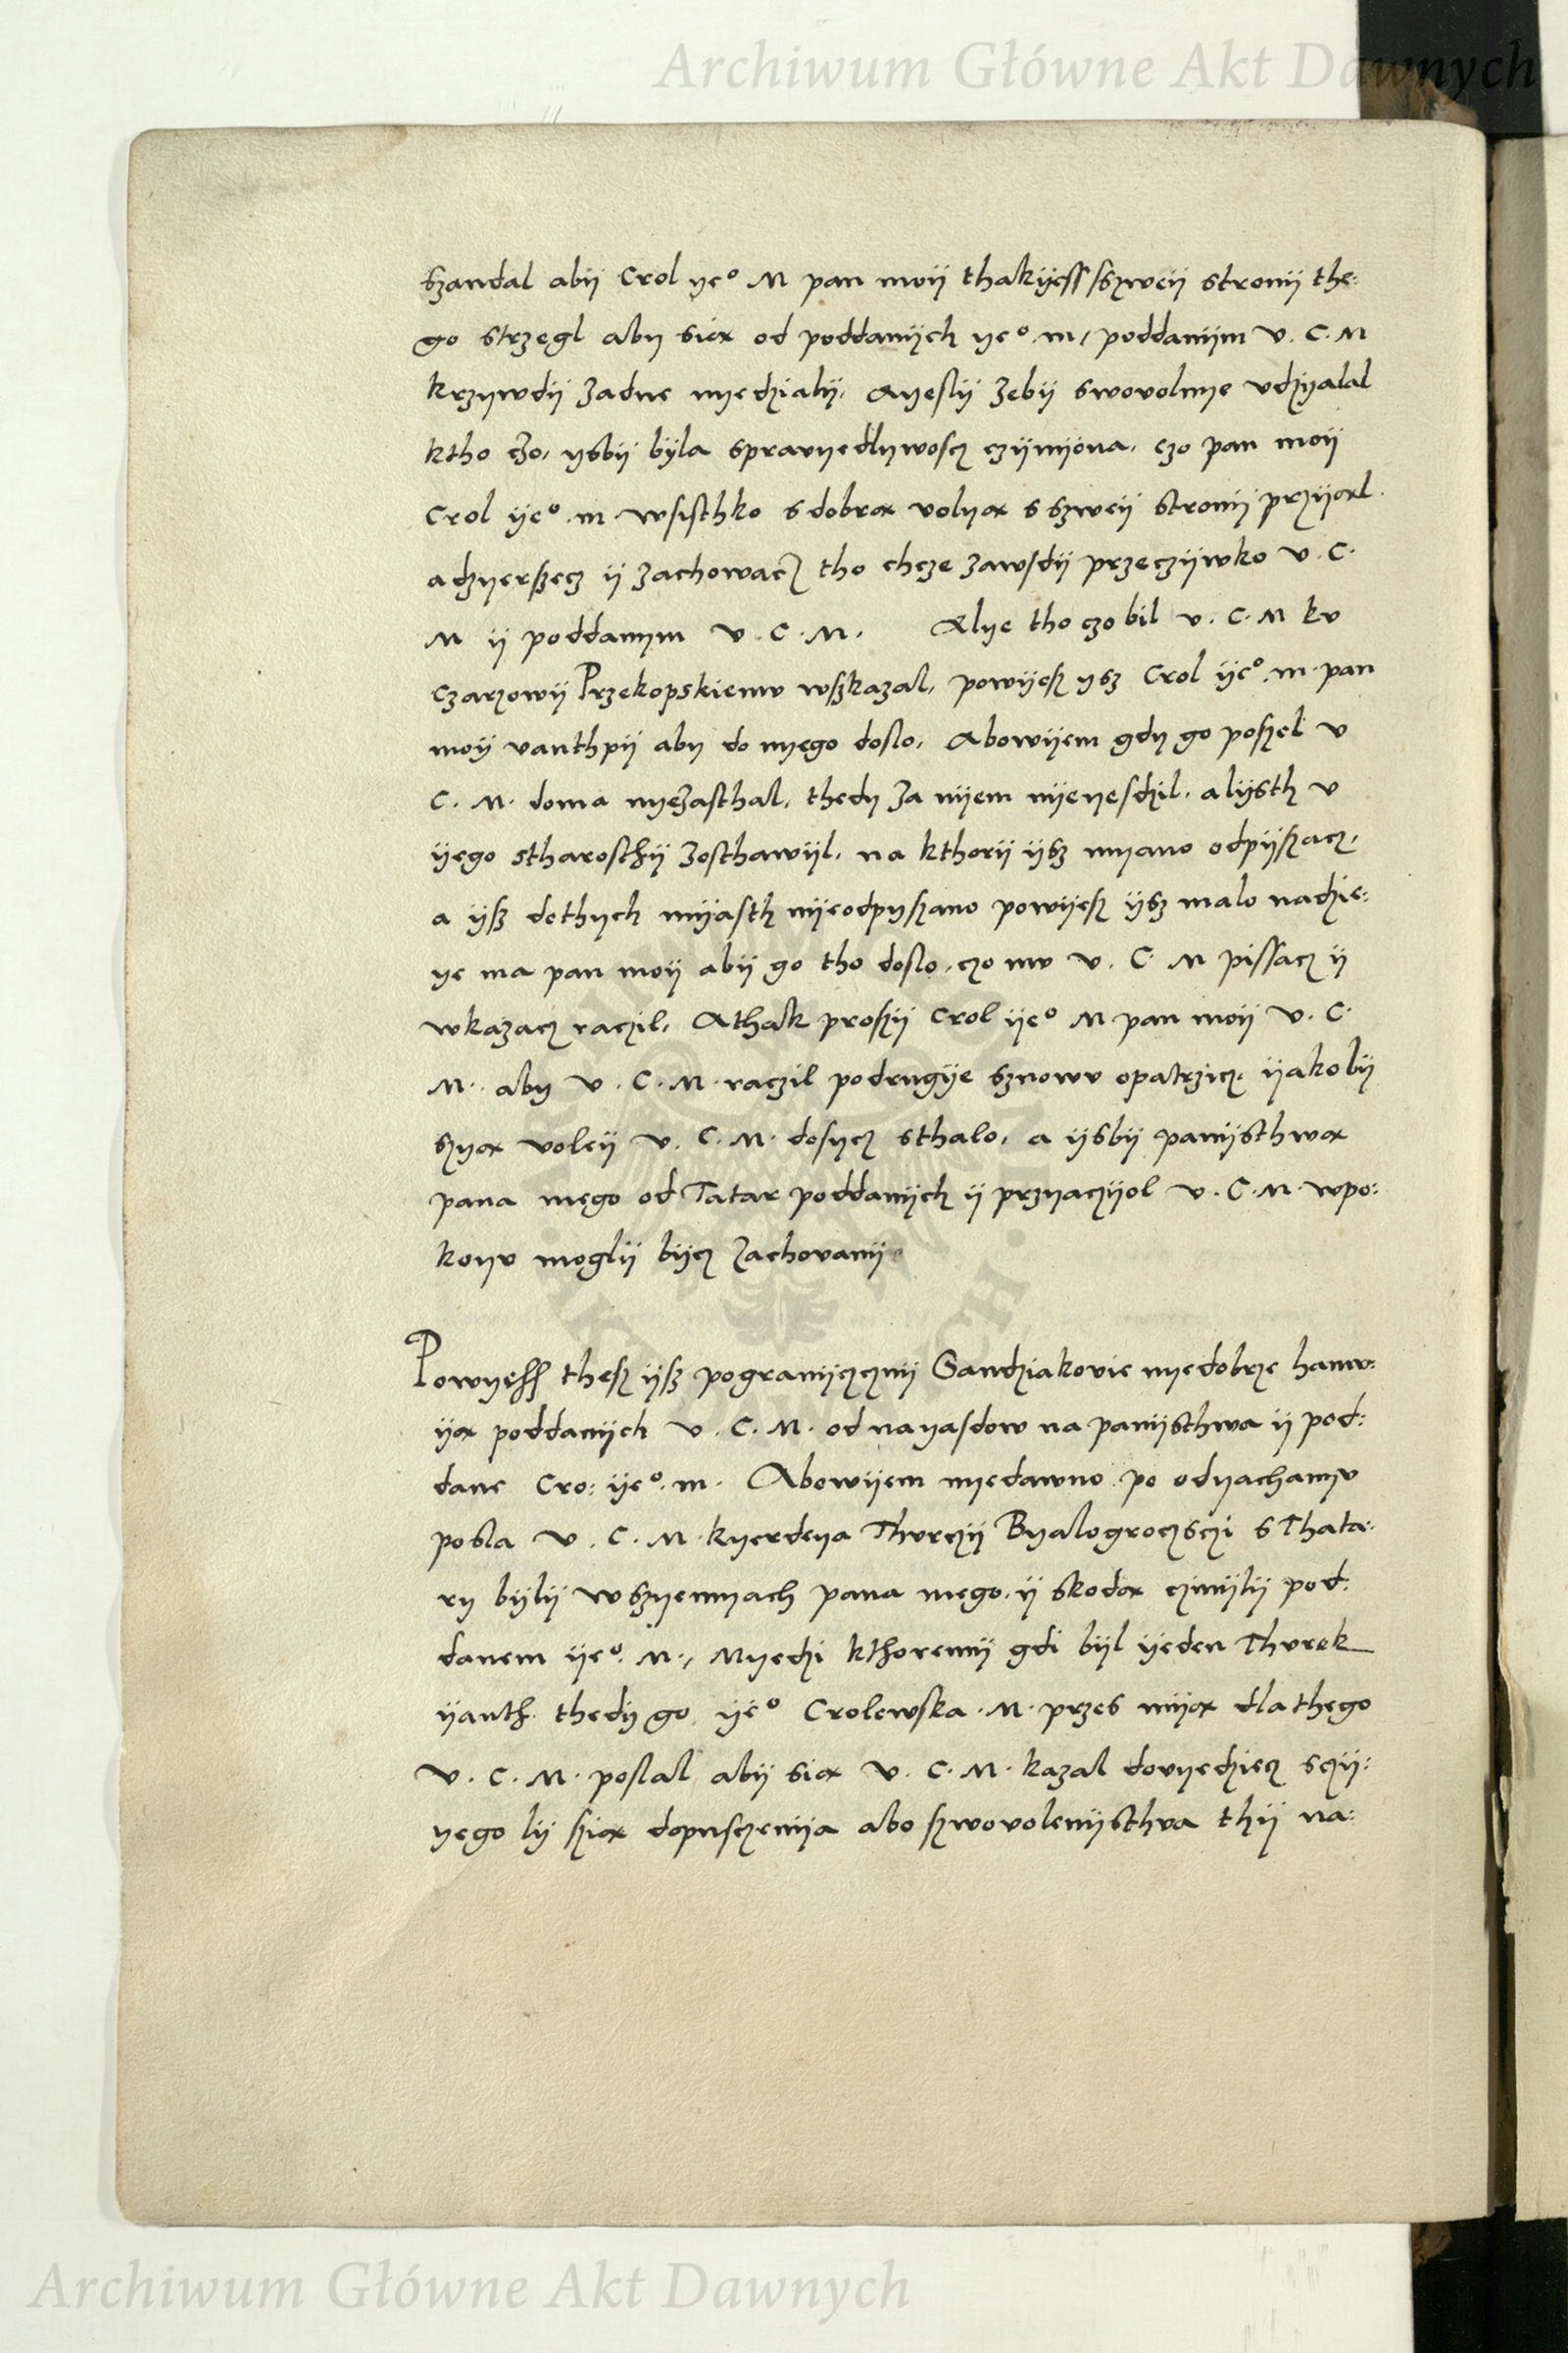 Archiwum Główne Akt Dawnych
szandal abÿ Crol yeº M pan moÿ thakÿess sszweÿ stronÿ the:
go strzęgl aby siæ od poddanÿch yeº m, poddanÿm V. C. M
krzywdÿ zadne nyedzialÿ, Ayeslÿ zebÿ swovolnye vdzyalal
ktho czo, ysbÿ bÿla spravyedlywoscz czÿnÿona, czo pan moÿ
Crol ÿeº m wsisthko s dobræ volyæ s szweÿ stronÿ przÿæl
adzyerszecz ÿ zachowacz tho chcze zawsdÿ przeczÿwko V. C.
M ÿ poddanym V. C. M. Alye tho czo bil V. C. M kv
czarzowÿ Przekopskiemv wszkazal, powÿesz ysz Crol ÿeº m pan
moÿ vanthpÿ aby do nyego doslo, Abowÿem gdy go poszel V
C. M. doma nyezasthal, thedy za nÿem nÿeyesdzil, a lÿsth v
ÿego stharosthÿ zosthawÿl, na kthorÿ ÿsz myano odpÿszacz,
a ÿsz dothych mÿasth nÿeodpyszano powÿesz ÿsz malo nadzie:
ye ma pan moÿ abÿ go tho doslo, czo mv V. C. M pissacz ÿ
wkazacz raczil, Athak proszÿ Crol ÿeº M pan moÿ V. C.
M. aby V. C. M. raczil podrugÿe sznowv opatrzicz, ÿakobÿ
szyæ voleÿ V. C. M. dosycz sthalo, a ÿsbÿ panÿsthwæ
pana mego od Tatar poddanÿch ÿ przyaczÿol V. C. M. wpo:
koyv moglÿ bÿcz zachovanÿ
Powyessz thesz ÿsz pogranÿczznÿ Sandziakovie nyedobrze hamv:
ÿæ poddanÿch V. C. M. od nayasdow na panÿsthwa ÿ pod:
dane Cro: ÿeº m. Abowÿem nyedawno po odyachanyv
posla V. C. M. kyerdeya Thvrczÿ Byalogroczsczi s Thata:
ry bÿlÿ w szyemyach pana mego, ÿ skodæ czinÿlÿ pod:
danem ÿeº M., Myedzi kthoremÿ gdi bÿl ÿeden Thvrek
ÿanth. thedÿ go ÿeº Crolewska M. przes mÿæ dla thego
V. C. M. poslal abÿ siæ V. C. M. kazal dovyedziecz sczÿ:
yego lÿ sziæ dopusczenÿa abo szwovolenÿsthva thÿ na:
Archiwum Główne Akt Dawnych